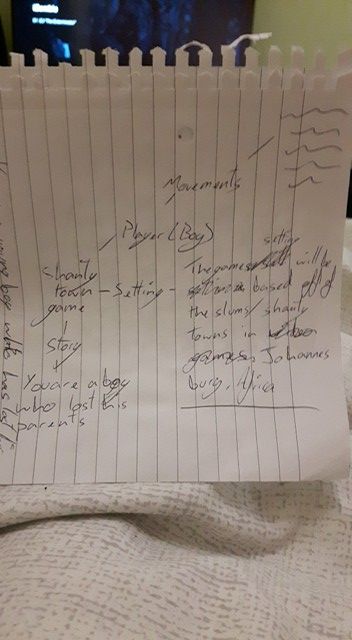 Movements
Player (Boy)
Shanty
town
game
- Setting -
The game setting will be
based off of
the slums / shanty
towns in
Johannes
burg, Africa
Story
You are a boy
who lost this
parents